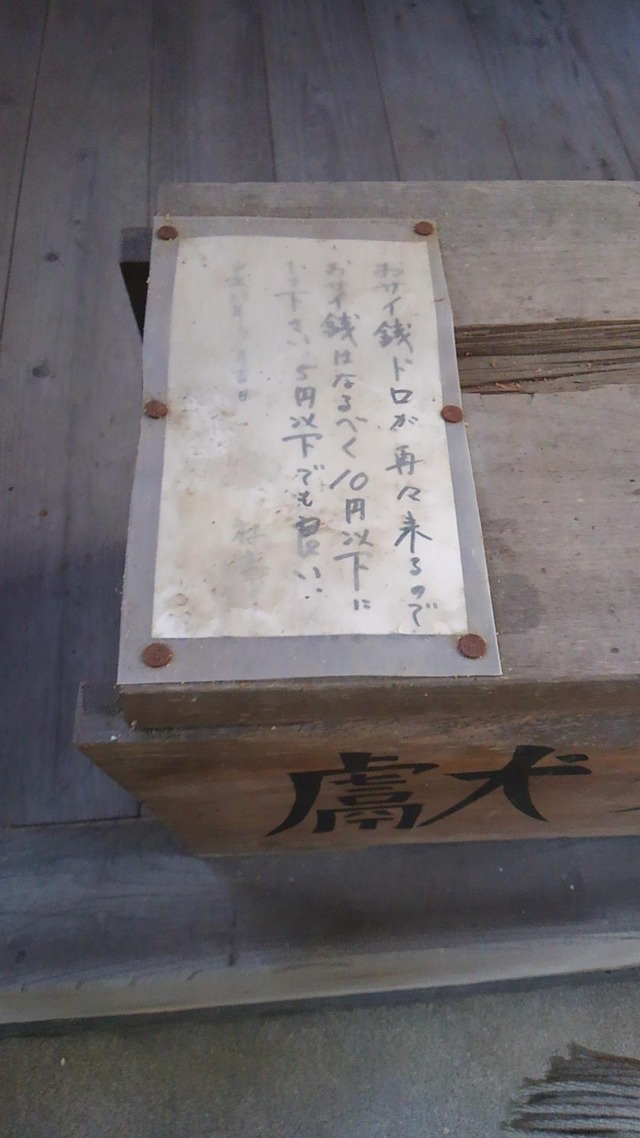 おサイ銭ドロが再々来るので
おサイ銭はなるべく10円以下に
して下さい.5円以下でも良い.
獻